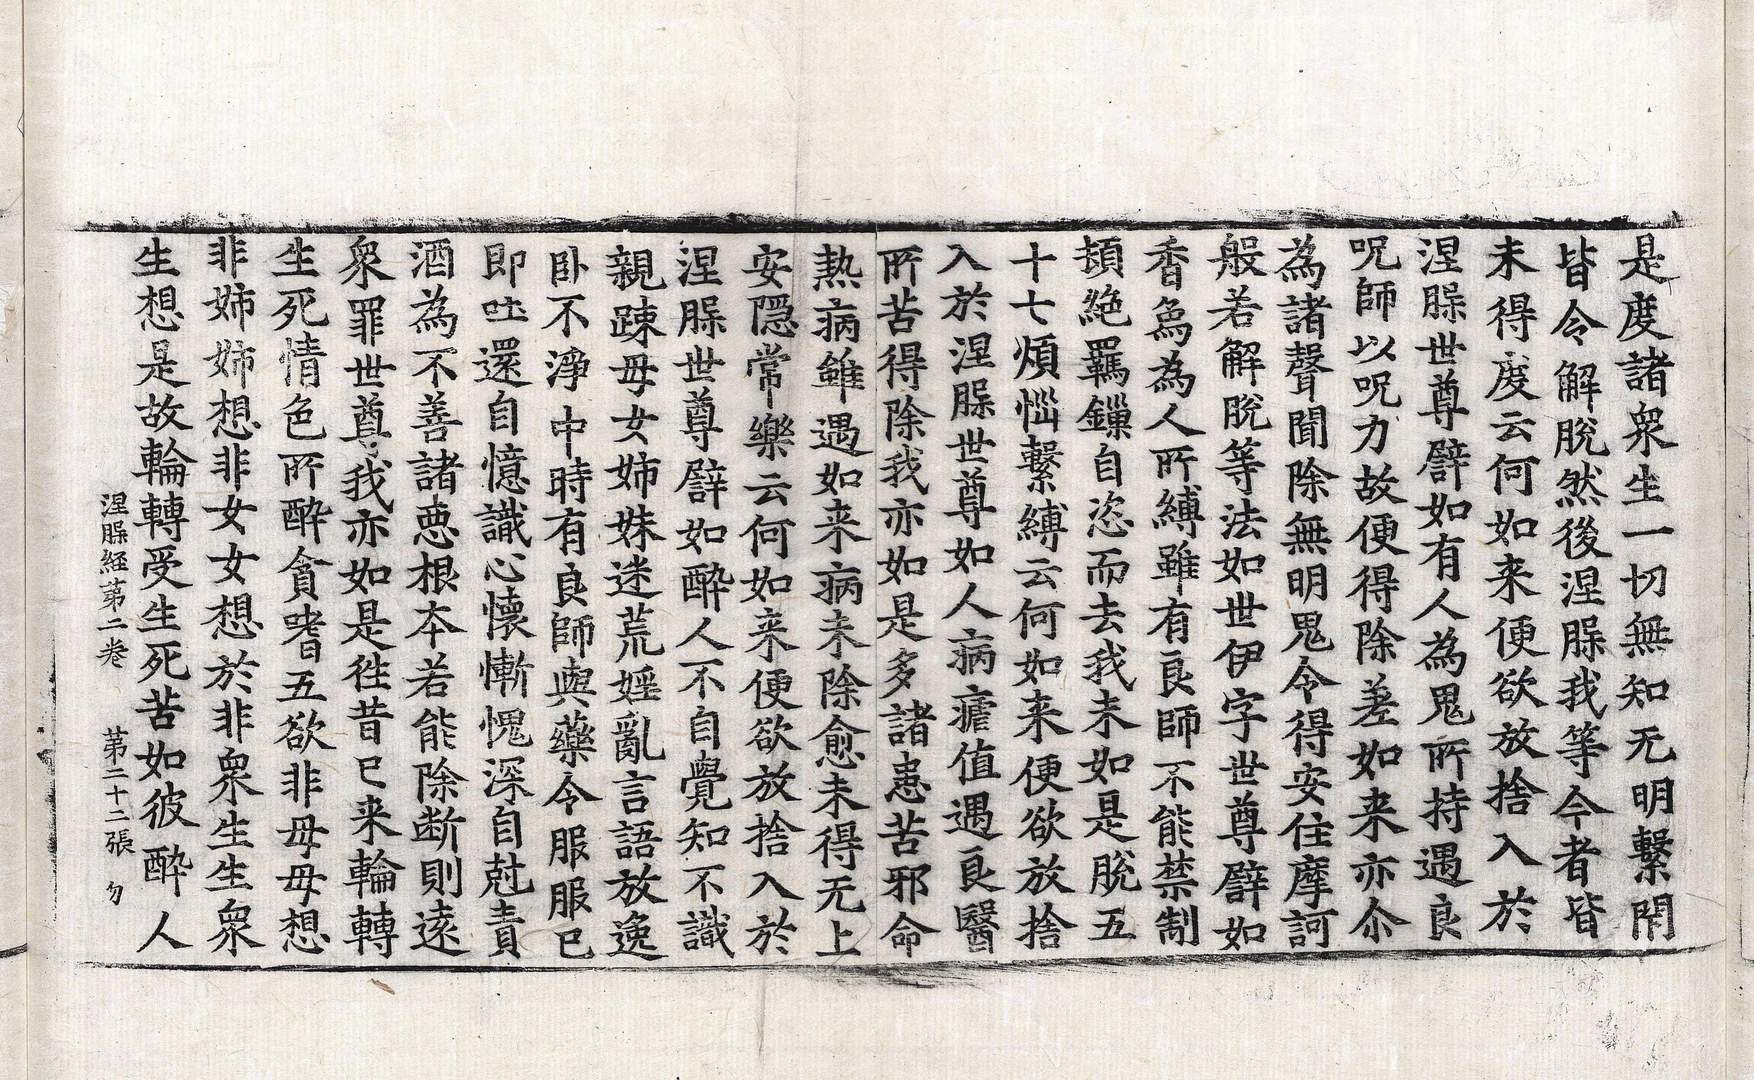 是度諸衆生一切無知无明繫閇
皆令解脫然後涅槃我等今者皆
未得度云何如来便欲放捨入於
涅槃世尊譬如有人為鬼所持遇良
呪師以呪力故便得除差如来亦尒
為諸聲聞除無明鬼令得安住摩訶
般若解脫等法如世伊字世尊譬如
香象為人所縛雖有良師不能禁制
頓絶羈鏁自恣而去我未如是脫五
十七煩惱繫縛云何如来便欲放捨
入於涅槃世尊如人病瘧值遇良醫
所苦得除我亦如是多諸患苦邪命
熱病雖遇如来病未除愈未得无上
安隱常樂云何如来便欲放捨入於
涅槃世尊譬如醉人不自覺知不識
親踈母女姉妹迷荒婬亂言語放逸
卧不淨中時有良師與藥令服服已
即吐還自憶識心懷慚愧深自剋責
酒為不善諸惡根本若能除断則遠
衆罪世尊我亦如是徃昔已来輪轉
生死情色所醉貪嗜五欲非母母想
非姉姉想非女女想於非衆生生衆
生想是故輪轉受生死苦如彼醉人
涅槃経苐二卷 第二十二張 勿